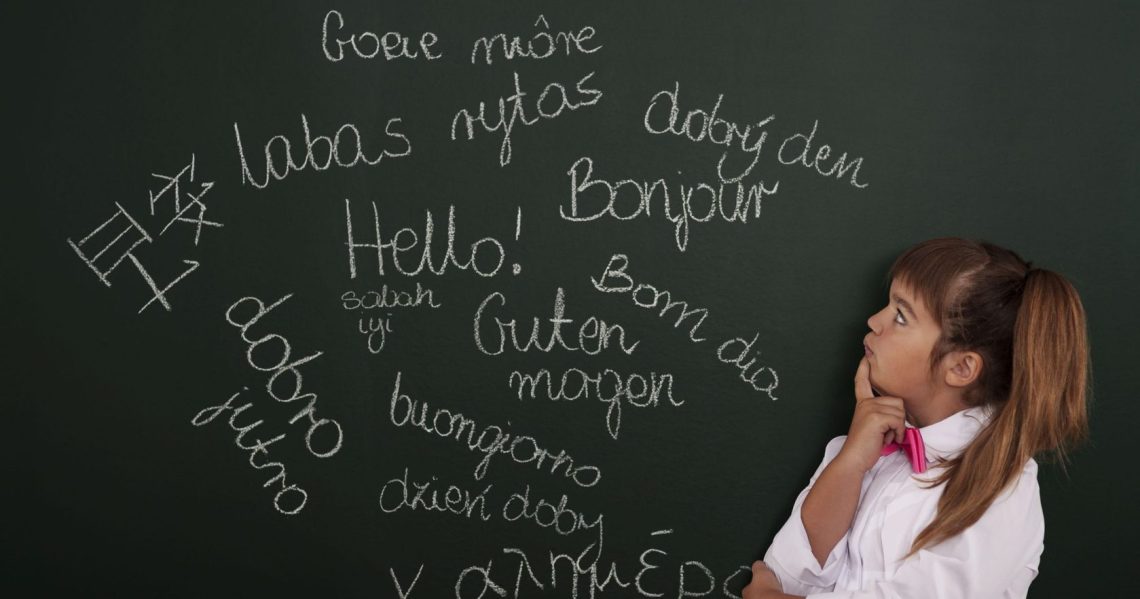 Goeie môre
labas rytas
dobrý den
Bonjour
Hello!
sabah
iyi
Bom dia
Guten
morgen
dobro
jutro
buongiorno
dzień doby
καλημέρα